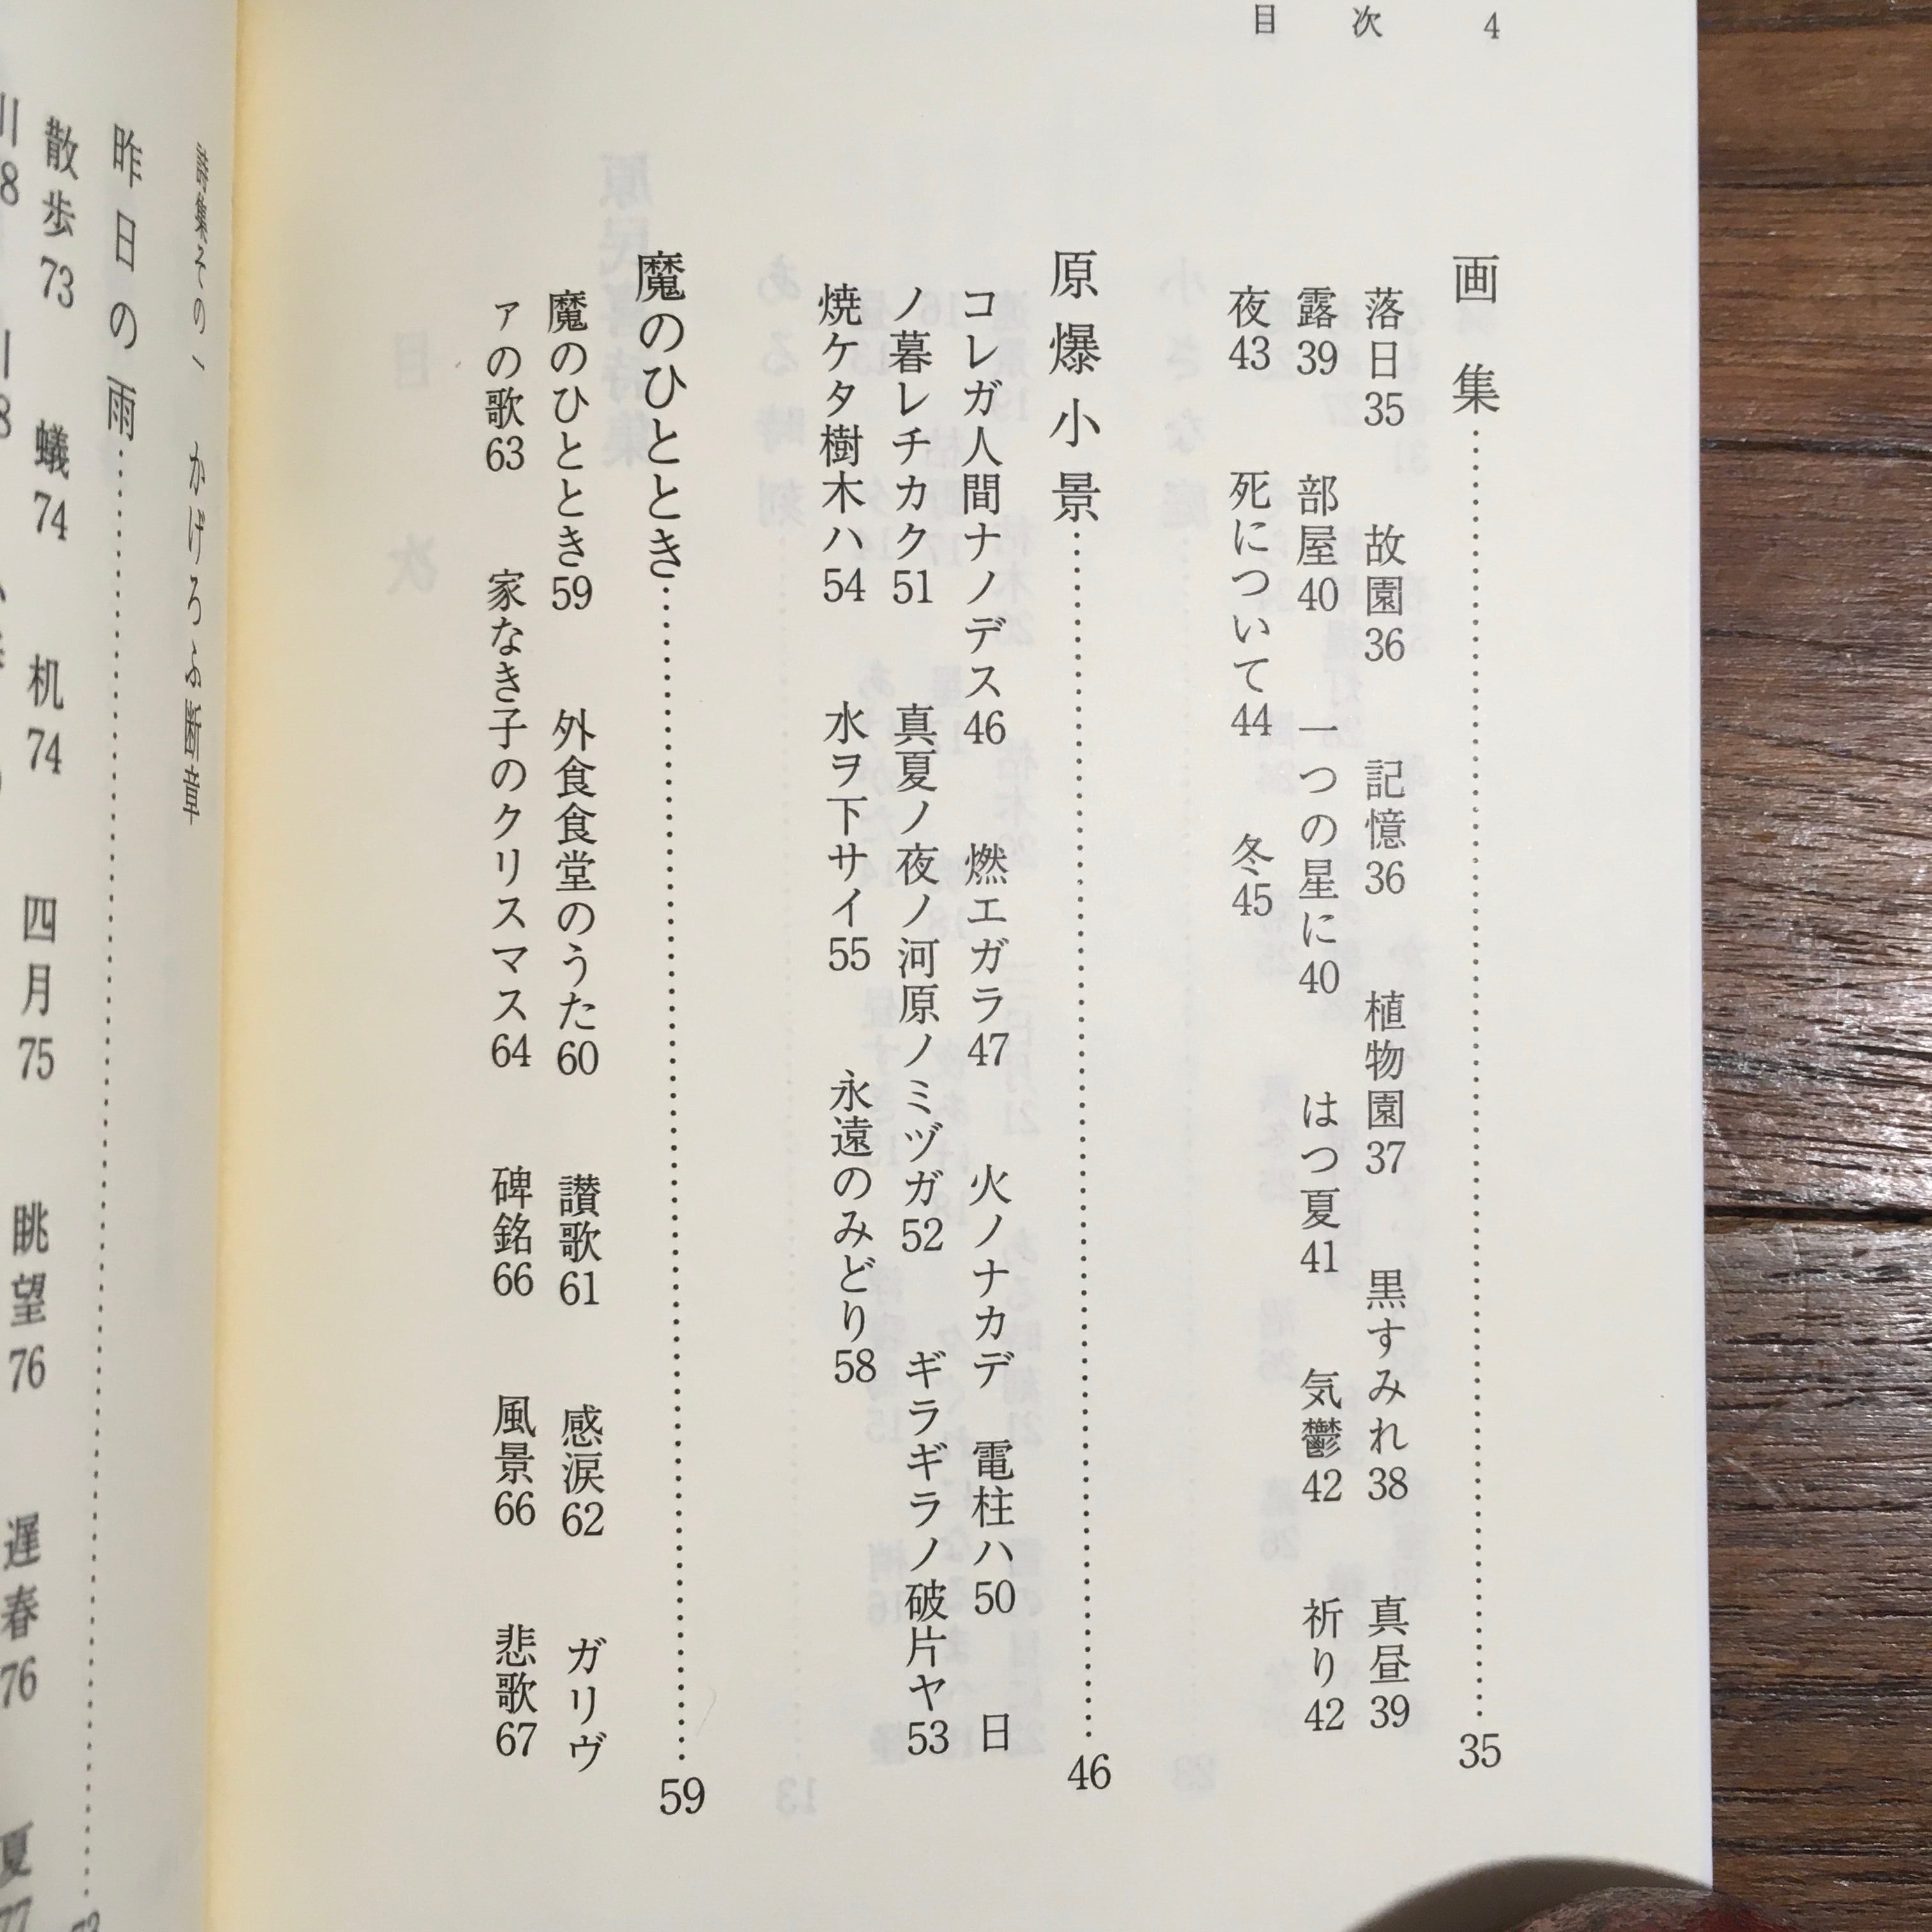 目次 4
画集……35
落日35 故園36 記憶36 植物園37 黒すみれ38 真昼39
露39 部屋40 一つの星に40 はつ夏41 気鬱42 祈り42
夜43 死について44 冬45
原爆小景……46
コレガ人間ナノデス46 燃エガラ47 火ノナカデ 電柱ハ50 日
ノ暮レチカク51 真夏ノ夜ノ河原ノミヅガ52 ギラギラノ破片ヤ53
焼ケタ樹木ハ54 水ヲ下サイ55 永遠のみどり58
魔のひととき……59
魔のひととき59 外食食堂のうた60 讃歌61 感涙62 ガリヴ
ァの歌63 家なき子のクリスマス64 碑銘66 風景66 悲歌67
詩集その一 かげろふ断章
昨日の雨……73
散歩73 蟻74 机74 四月75 眺望76 遅春76 夏77